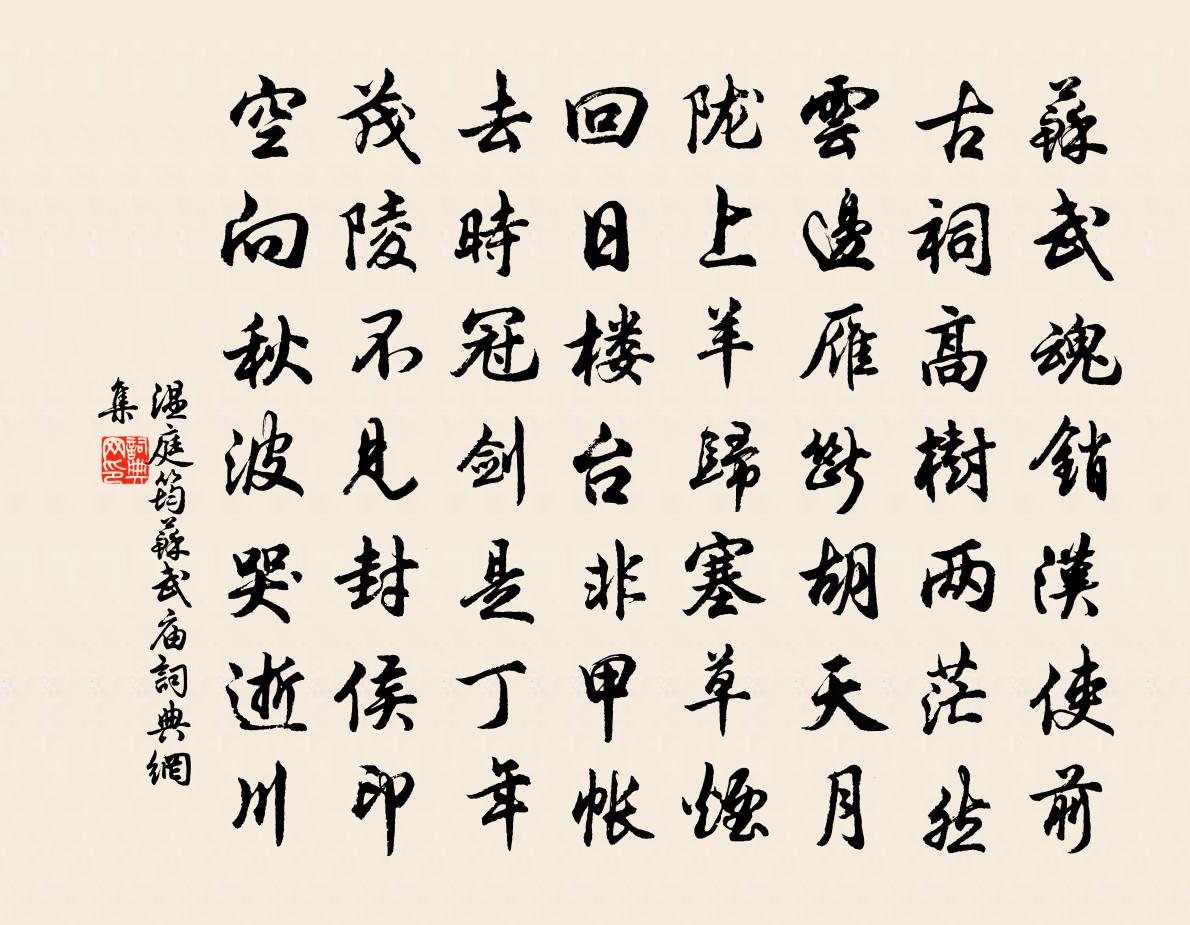 蘇武魂銷漢使前
古祠高樹两茫然
雲邊雁斷胡天月
陇上羊歸塞草煙
回日楼台非甲帐
去時冠剑是丁年
茂陵不見封侯印
空向秋波哭逝川
温庭筠蘇武庙詞典網
集
詞典
网印